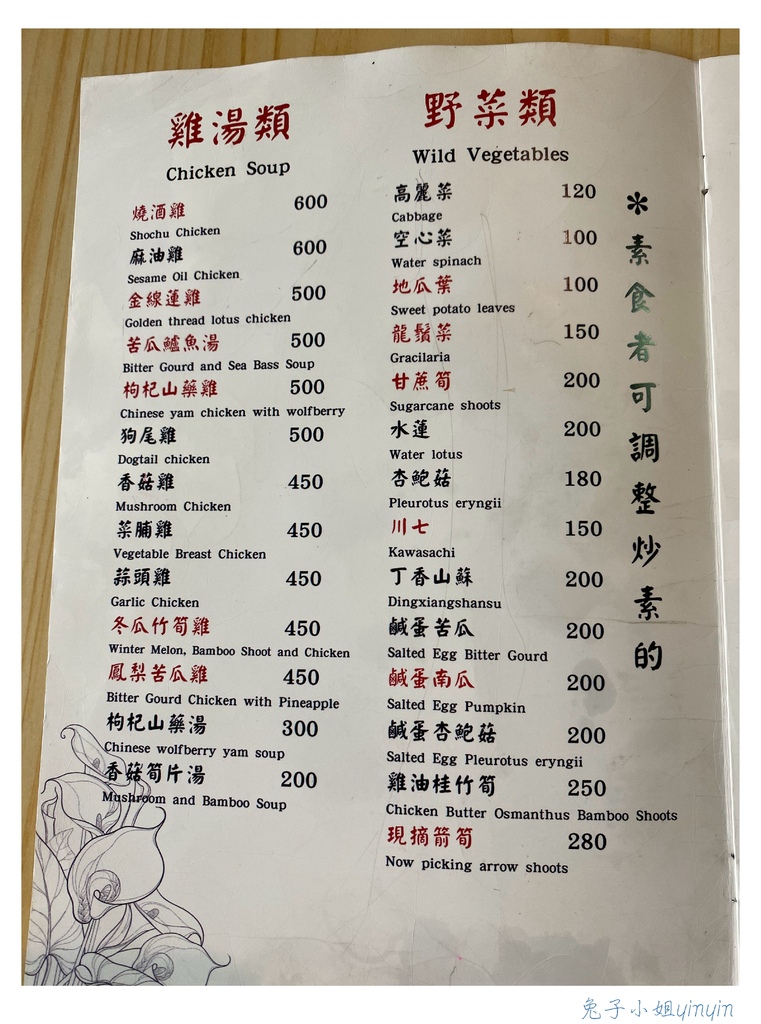 雞湯類
Chicken Soup
燒酒雞 600
Shochu Chicken
麻油雞 600
Sesame Oil Chicken
金線蓮雞 500
Golden thread lotus chicken
苦瓜鱸魚湯 500
Bitter Gourd and Sea Bass Soup
枸杞山藥雞 500
Chinese yam chicken with wolfberry
狗尾雞 500
Dogtail chicken
香菇雞 450
Mushroom Chicken
菜脯雞 450
Vegetable Breast Chicken
蒜頭雞 450
Garlic Chicken
冬瓜竹筍雞 450
Winter Melon, Bamboo Shoot and Chicken
鳳梨苦瓜雞 450
Bitter Gourd Chicken with Pineapple
枸杞山藥湯 300
Chinese wolfberry yam soup
香菇筍片湯 200
Mushroom and Bamboo Soup
野菜類
Wild Vegetables
高麗菜 120
Cabbage
空心菜 100
Water spinach
地瓜葉 100
Sweet potato leaves
龍鬚菜 150
Gracilaria
甘蔗筍 200
Sugarcane shoots
水蓮 200
Water lotus
杏鮑菇 180
Pleurotus eryngii
川七 150
Kawasachi
丁香山蘇 200
Dingxiangshansu
鹹蛋苦瓜 200
Salted Egg Bitter Gourd
鹹蛋南瓜 200
Salted Egg Pumpkin
鹹蛋杏鮑菇 200
Salted Egg Pleurotus eryngii
雞油桂竹筍 250
Chicken Butter Osmanthus Bamboo Shoots
現摘箭筍 280
Now picking arrow shoots
＊素食者可調整炒素的
兔子小姐yinyin